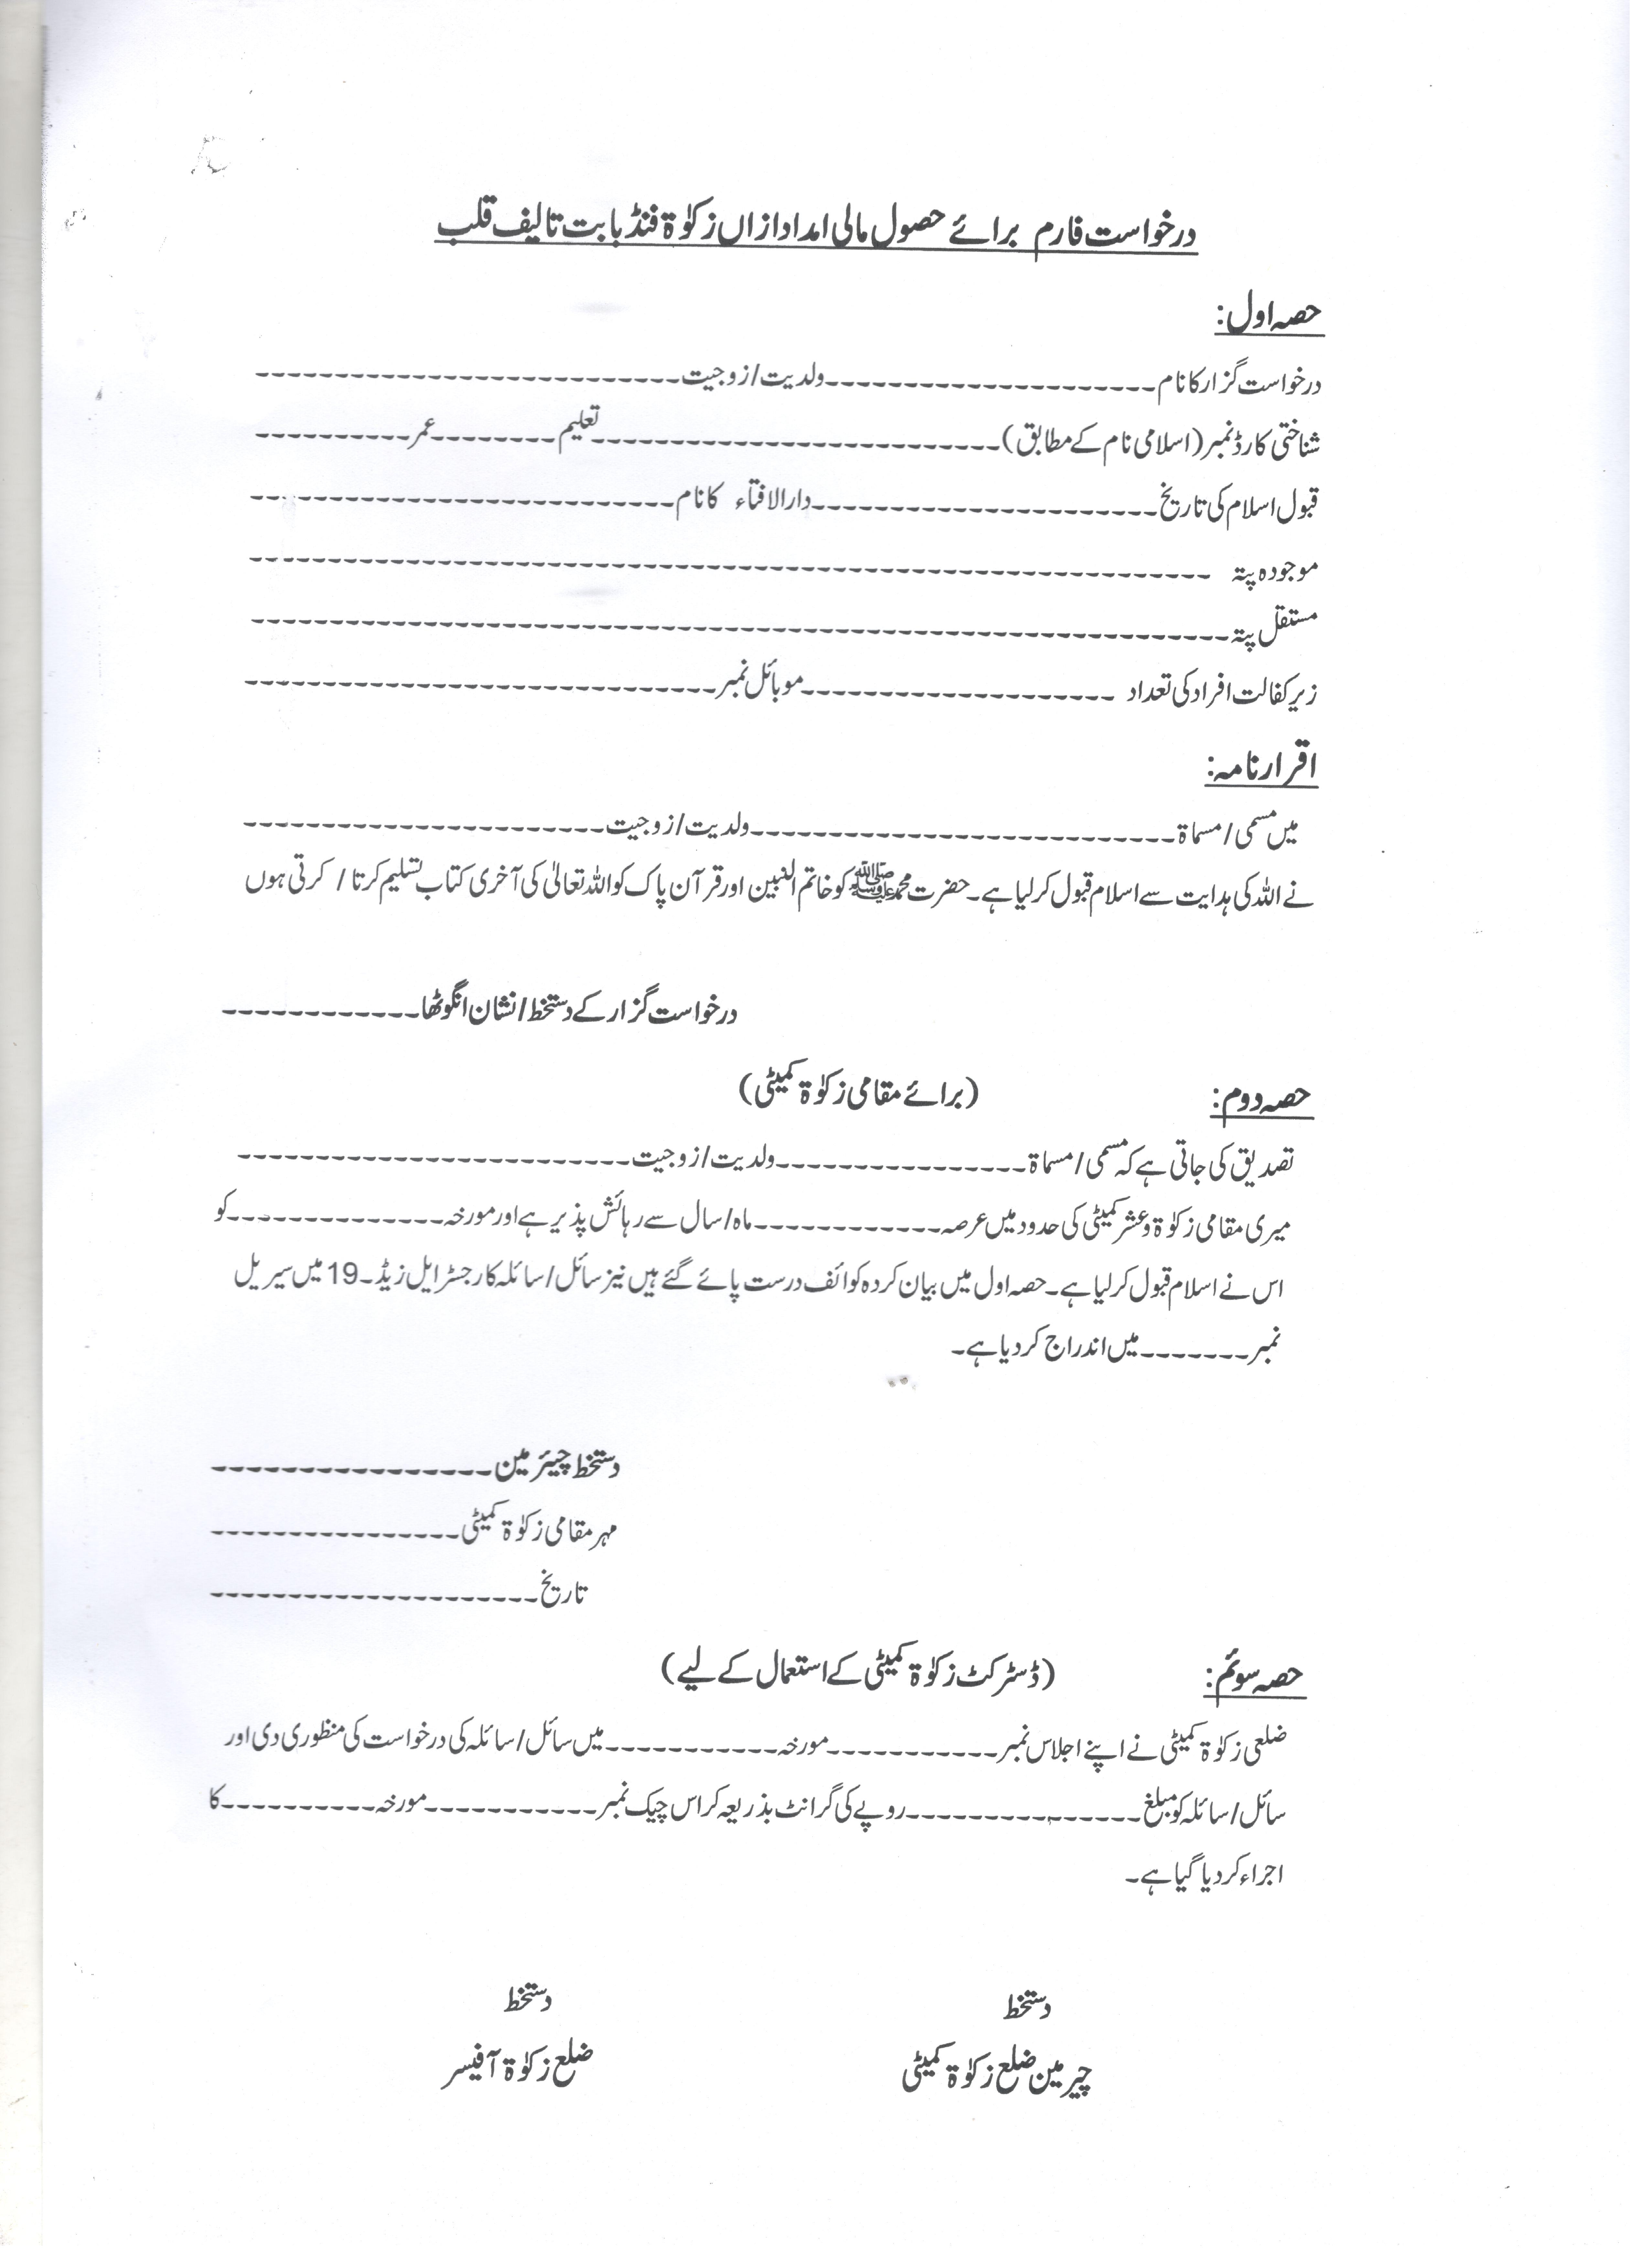 درخواست فارم برائے حصول مالی امداد ازاں زکوٰۃ فنڈ بابت تالیف قلب
حصہ اول:
درخواست گزار کا نام---------------------ولدیت/زوجیت---------------------------
شناختی کارڈ نمبر (اسلامی نام کے مطابق)--------------------------تعلیم--------عمر----------
قبول اسلام کی تاریخ----------------------دارالافتاء کا نام---------------------------
موجودہ پتہ --------------------------------------------------------------
مستقل پتہ---------------------------------------------------------------
زیر کفالت افراد کی تعداد --------------------موبائل نمبر------------------------------
اقرار نامہ:
میں مسمی/مسماۃ---------------------------ولدیت/زوجیت-----------------------
نے اللہ کی ہدایت سے اسلام قبول کر لیا ہے۔ حضرت محمد ﷺ کو خاتم النبین اور قرآن پاک کو اللہ تعالیٰ کی آخری کتاب تسلیم کرتا / کرتی ہوں
درخواست گزار کے دستخط/نشان انگوٹھا------------
حصہ دوم: (برائے مقامی زکوٰۃ کمیٹی)
تصدیق کی جاتی ہے کہ مسمی/مسماۃ----------------ولدیت/زوجیت-------------------------
میری مقامی زکوٰۃ وعشر کمیٹی کی حدود میں عرصہ------------ماہ/سال سے رہائش پذیر ہے اور مورخہ--------------کو
اس نے اسلام قبول کر لیا ہے۔ حصہ اول میں بیان کردہ کوائف درست پائے گئے ہیں نیز سائل/سائلہ کا رجسٹر ایل زیڈ۔19 میں سیریل
نمبر-------میں اندراج کر دیا ہے۔
دستخط چیئرمین----------------
مہر مقامی زکوٰۃ کمیٹی----------------
تاریخ---------------------
حصہ سوئم: (ڈسٹرکٹ زکوٰۃ کمیٹی کے استعمال کے لیے)
ضلعی زکوٰۃ کمیٹی نے اپنے اجلاس نمبر-----------مورخہ-----------میں سائل/سائلہ کی درخواست کی منظوری دی اور
سائل/سائلہ کو مبلغ---------------روپے کی گرانٹ بذریعہ کراس چیک نمبر-----------مورخہ----------کا
اجراء کر دیا گیا ہے۔
دستخط دستخط
چیرمین ضلع زکوٰۃ کمیٹی ضلع زکوٰۃ آفیسر